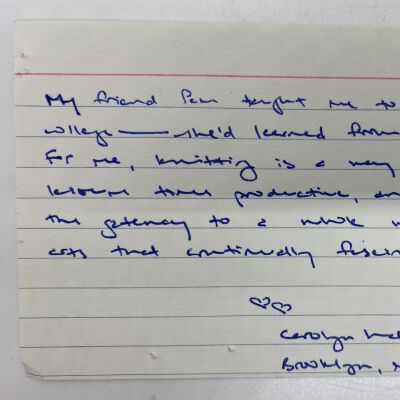 My friend Pam taught me to
college — she'd learned from
For me, knitting is a way
leisure time productive, an
the gateway to a whole w
arts that continually fascin
Carolyn
Brooklyn, N